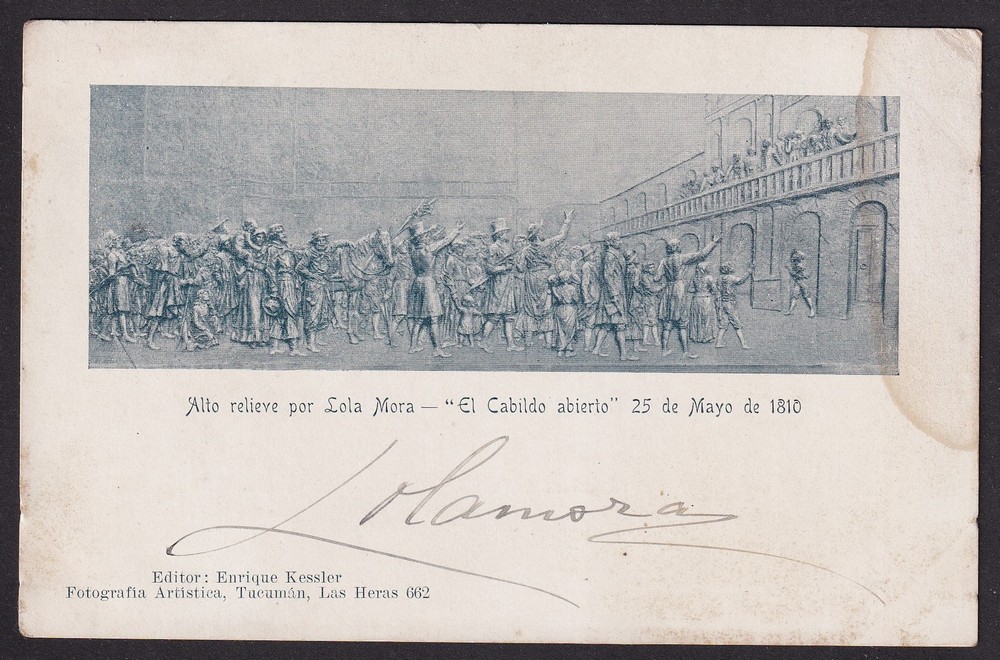 Alto relieve por Lola Mora — "El Cabildo abierto" 25 de Mayo de 1810
Lola Mora
Editor: Enrique Kessler
Fotografía Artística, Tucumán, Las Heras 662